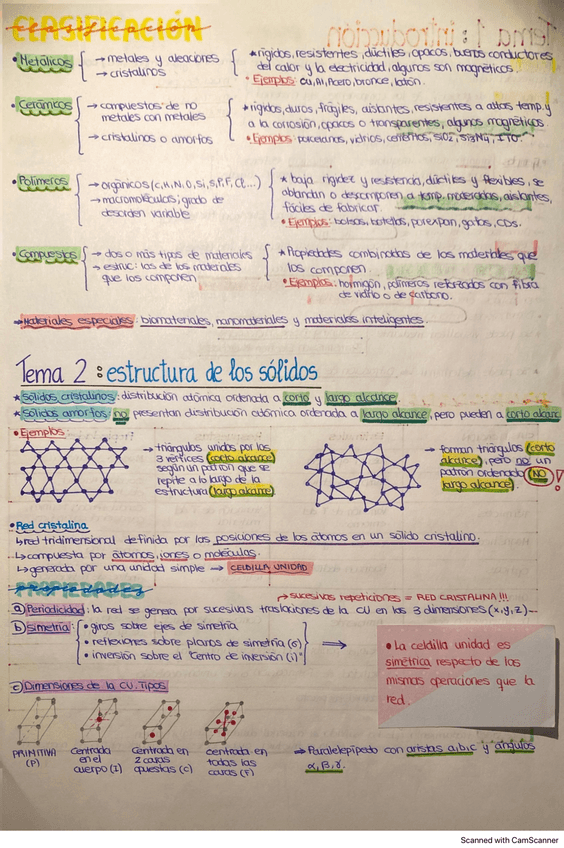 CLASIFICACIÓN
Tema 1: introducción
• Metálicos
→ metales y aleaciones
→ cristalinos
* rígidos, resistentes, dúctiles, opacos, buenos conductores
del calor y la electricidad, algunos son magnéticos.
• Ejemplos: Cu, Al, Acero, bronce, latón.
• Cerámicos
→ compuestos de no
metales con metales
→ cristalinos o amorfos
* rígidos, duros, frágiles, aislantes, resistentes a altas temp. y
a la corrosión, opacos o transparentes, algunos magnéticos
• Ejemplos: porcelanas, vidrios, cementos, SiO2, Si3N4, ITO.
• Polímeros
→ orgánicos (C, H, N, O, Si, S, P, F, Cl,...)
→ macromoléculas; grado de
desorden variable
* baja rigidez y resistencia, dúctiles y flexibles, se
ablandan o descomponen a temp. moderadas, aislantes,
fáciles de fabricar.
• Ejemplos: bolsas, botellas, porexpan, gafas, CDs.
• Compuestos
→ dos o más tipos de materiales
→ estruc: las de los materiales
que los componen
* Propiedades combinadas de los materiales que
los componen.
• Ejemplos: hormigón, polímeros reforzados con fibra
de vidrio o de carbono.
→ Materiales especiales: biomateriales, nanomateriales y materiales inteligentes.
Tema 2: estructura de los sólidos
* Sólidos cristalinos: distribución atómica ordenada a corto y largo alcance.
* Sólidos amorfos: no presentan distribución atómica ordenada a largo alcance, pero pueden a corto alcanc
• Ejemplos:
→ triángulos unidos por los
3 vértices (corto alcance)
según un patrón que se
repite a lo largo de la
estructura (largo alcance)
→ forman triángulos (corto
alcance), pero no un
patrón ordenado (NO
largo alcance) !
• Red cristalina
↳ red tridimensional definida por las posiciones de los átomos en un sólido cristalino.
↳ compuesta por átomos, iones o moléculas.
↳ generada por una unidad simple → CELDILLA UNIDAD
PROPIEDADES
→ sucesivas repeticiones = RED CRISTALINA !!!
a) Periodicidad: la red se genera por sucesivas traslaciones de la CU en las 3 dimensiones (x,y,z)
b) Simetría:
• giros sobre ejes de simetría
• reflexiones sobre planos de simetría (σ)
• inversión sobre el "centro de inversión (i)"
⇒
• La celdilla unidad es
simétrica respecto de las
mismas operaciones que la
red.
c) Dimensiones de la CU. Tipos
PRIMITIVA
(P)
Centrada
en el
cuerpo (I)
Centrada en
2 caras
opuestas (C)
Centrada en
todas las
caras (F)
→ Paralelepípedo con aristas a,b,c y ángulos
α, β, γ.
Scanned with CamScanner